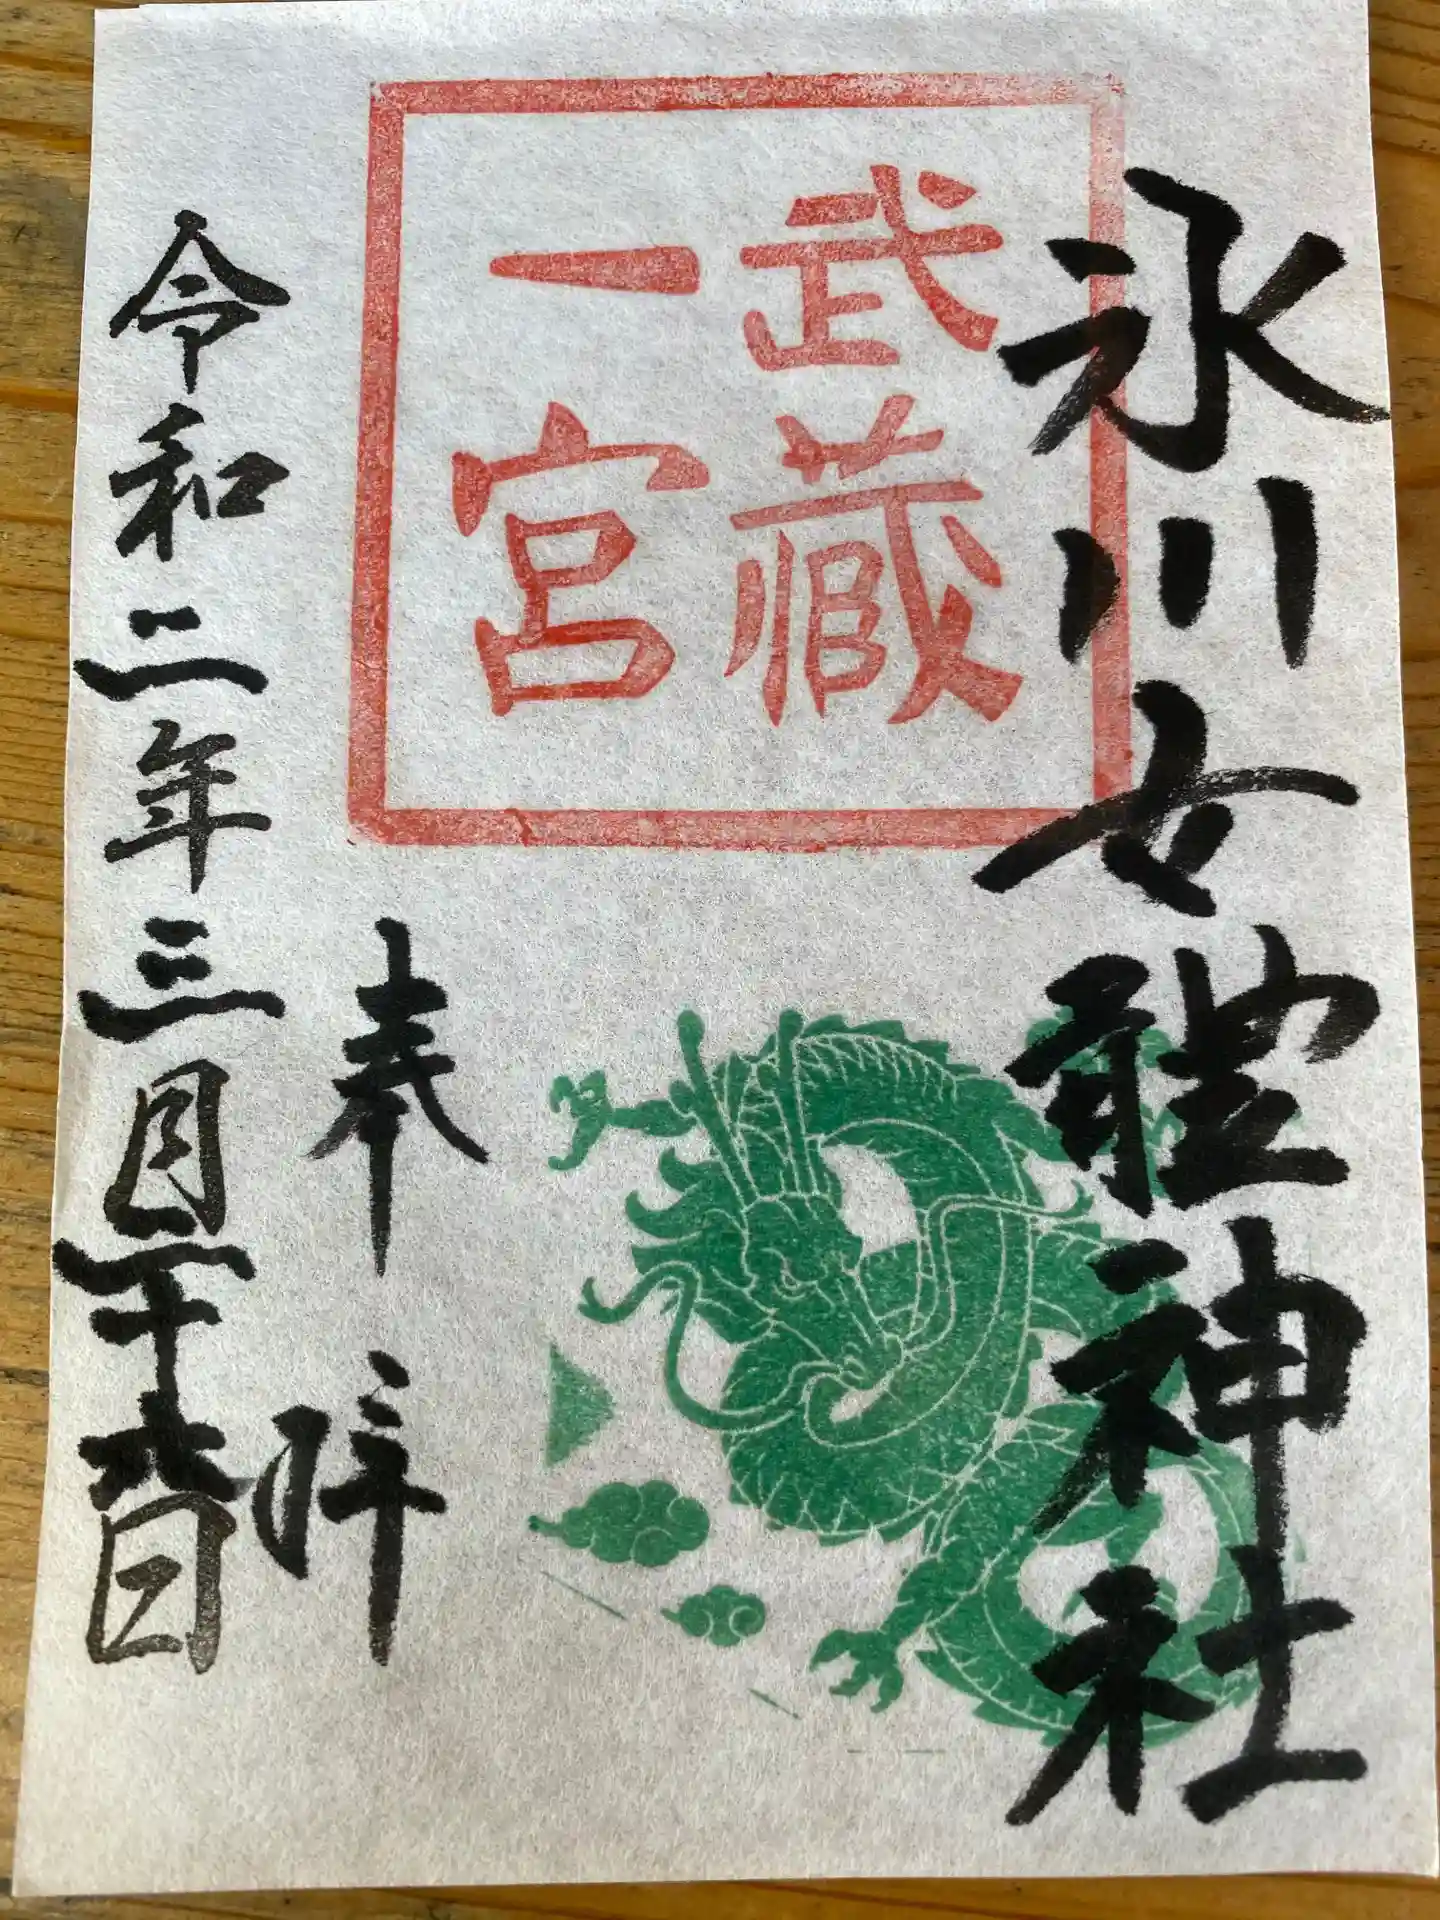 氷川女體神社
武蔵
一宮
奉拝
令和二年三月二十日